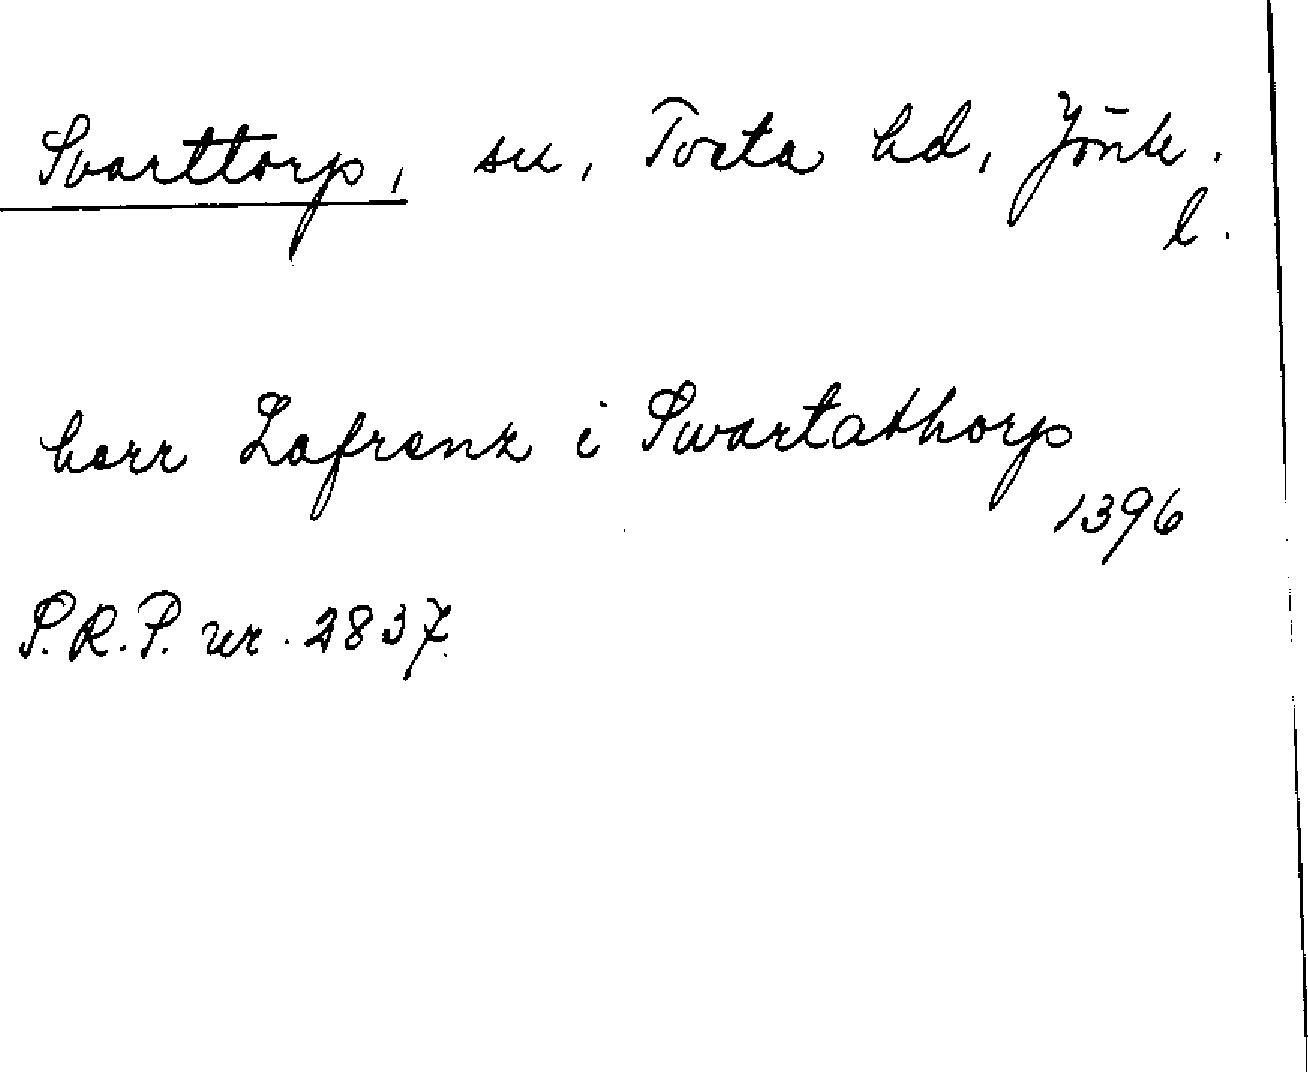 Svarttorp, sn, Tveta hd, Jönk.
l.
herr Lafrenz i Swartathorp
1396
S.R.P. nr. 2837.